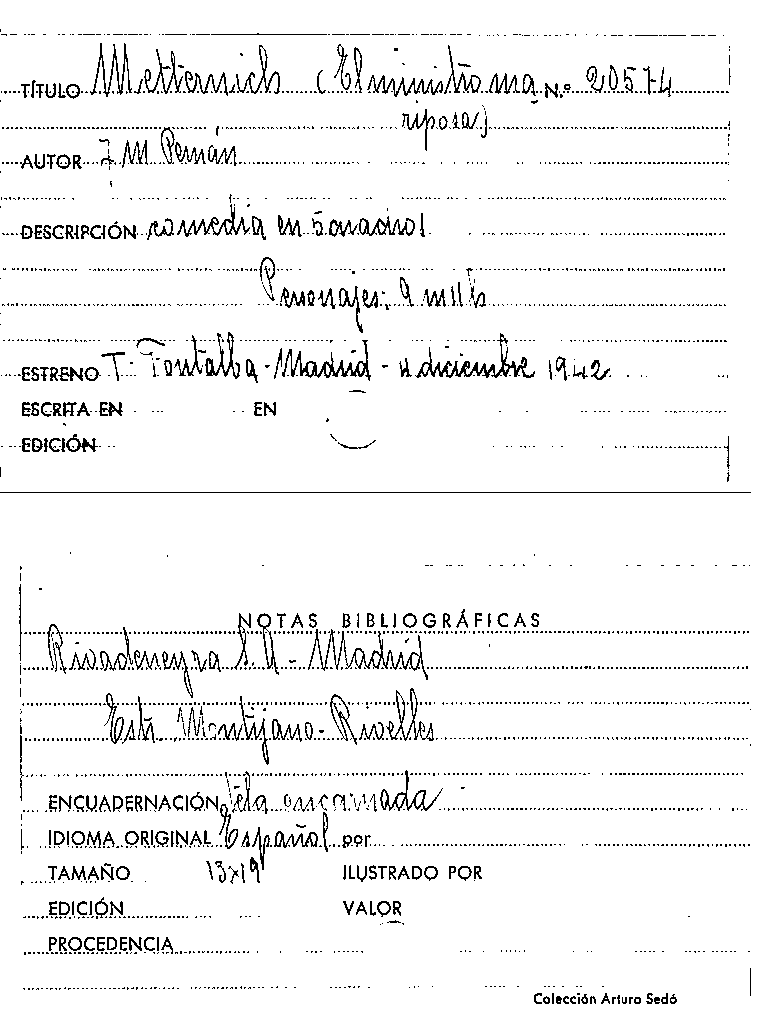 TÍTULO Metternich (El ministro ma N.º 20574
riposa)
AUTOR J M Pemán
DESCRIPCIÓN comedia en 5 cuadros
Personajes: 9 m 11 h
ESTRENO T. Fontalba - Madrid - diciembre 1942
ESCRITA EN EN
EDICIÓN
NOTAS BIBLIOGRÁFICAS
Rivadeneyra S.A - Madrid
Estr. Montijano - Rivelles
ENCUADERNACIÓN tela encarnada
IDIOMA ORIGINAL Español por
TAMAÑO 13x19 ILUSTRADO POR
EDICIÓN VALOR
PROCEDENCIA
Colección Arturo Sedó